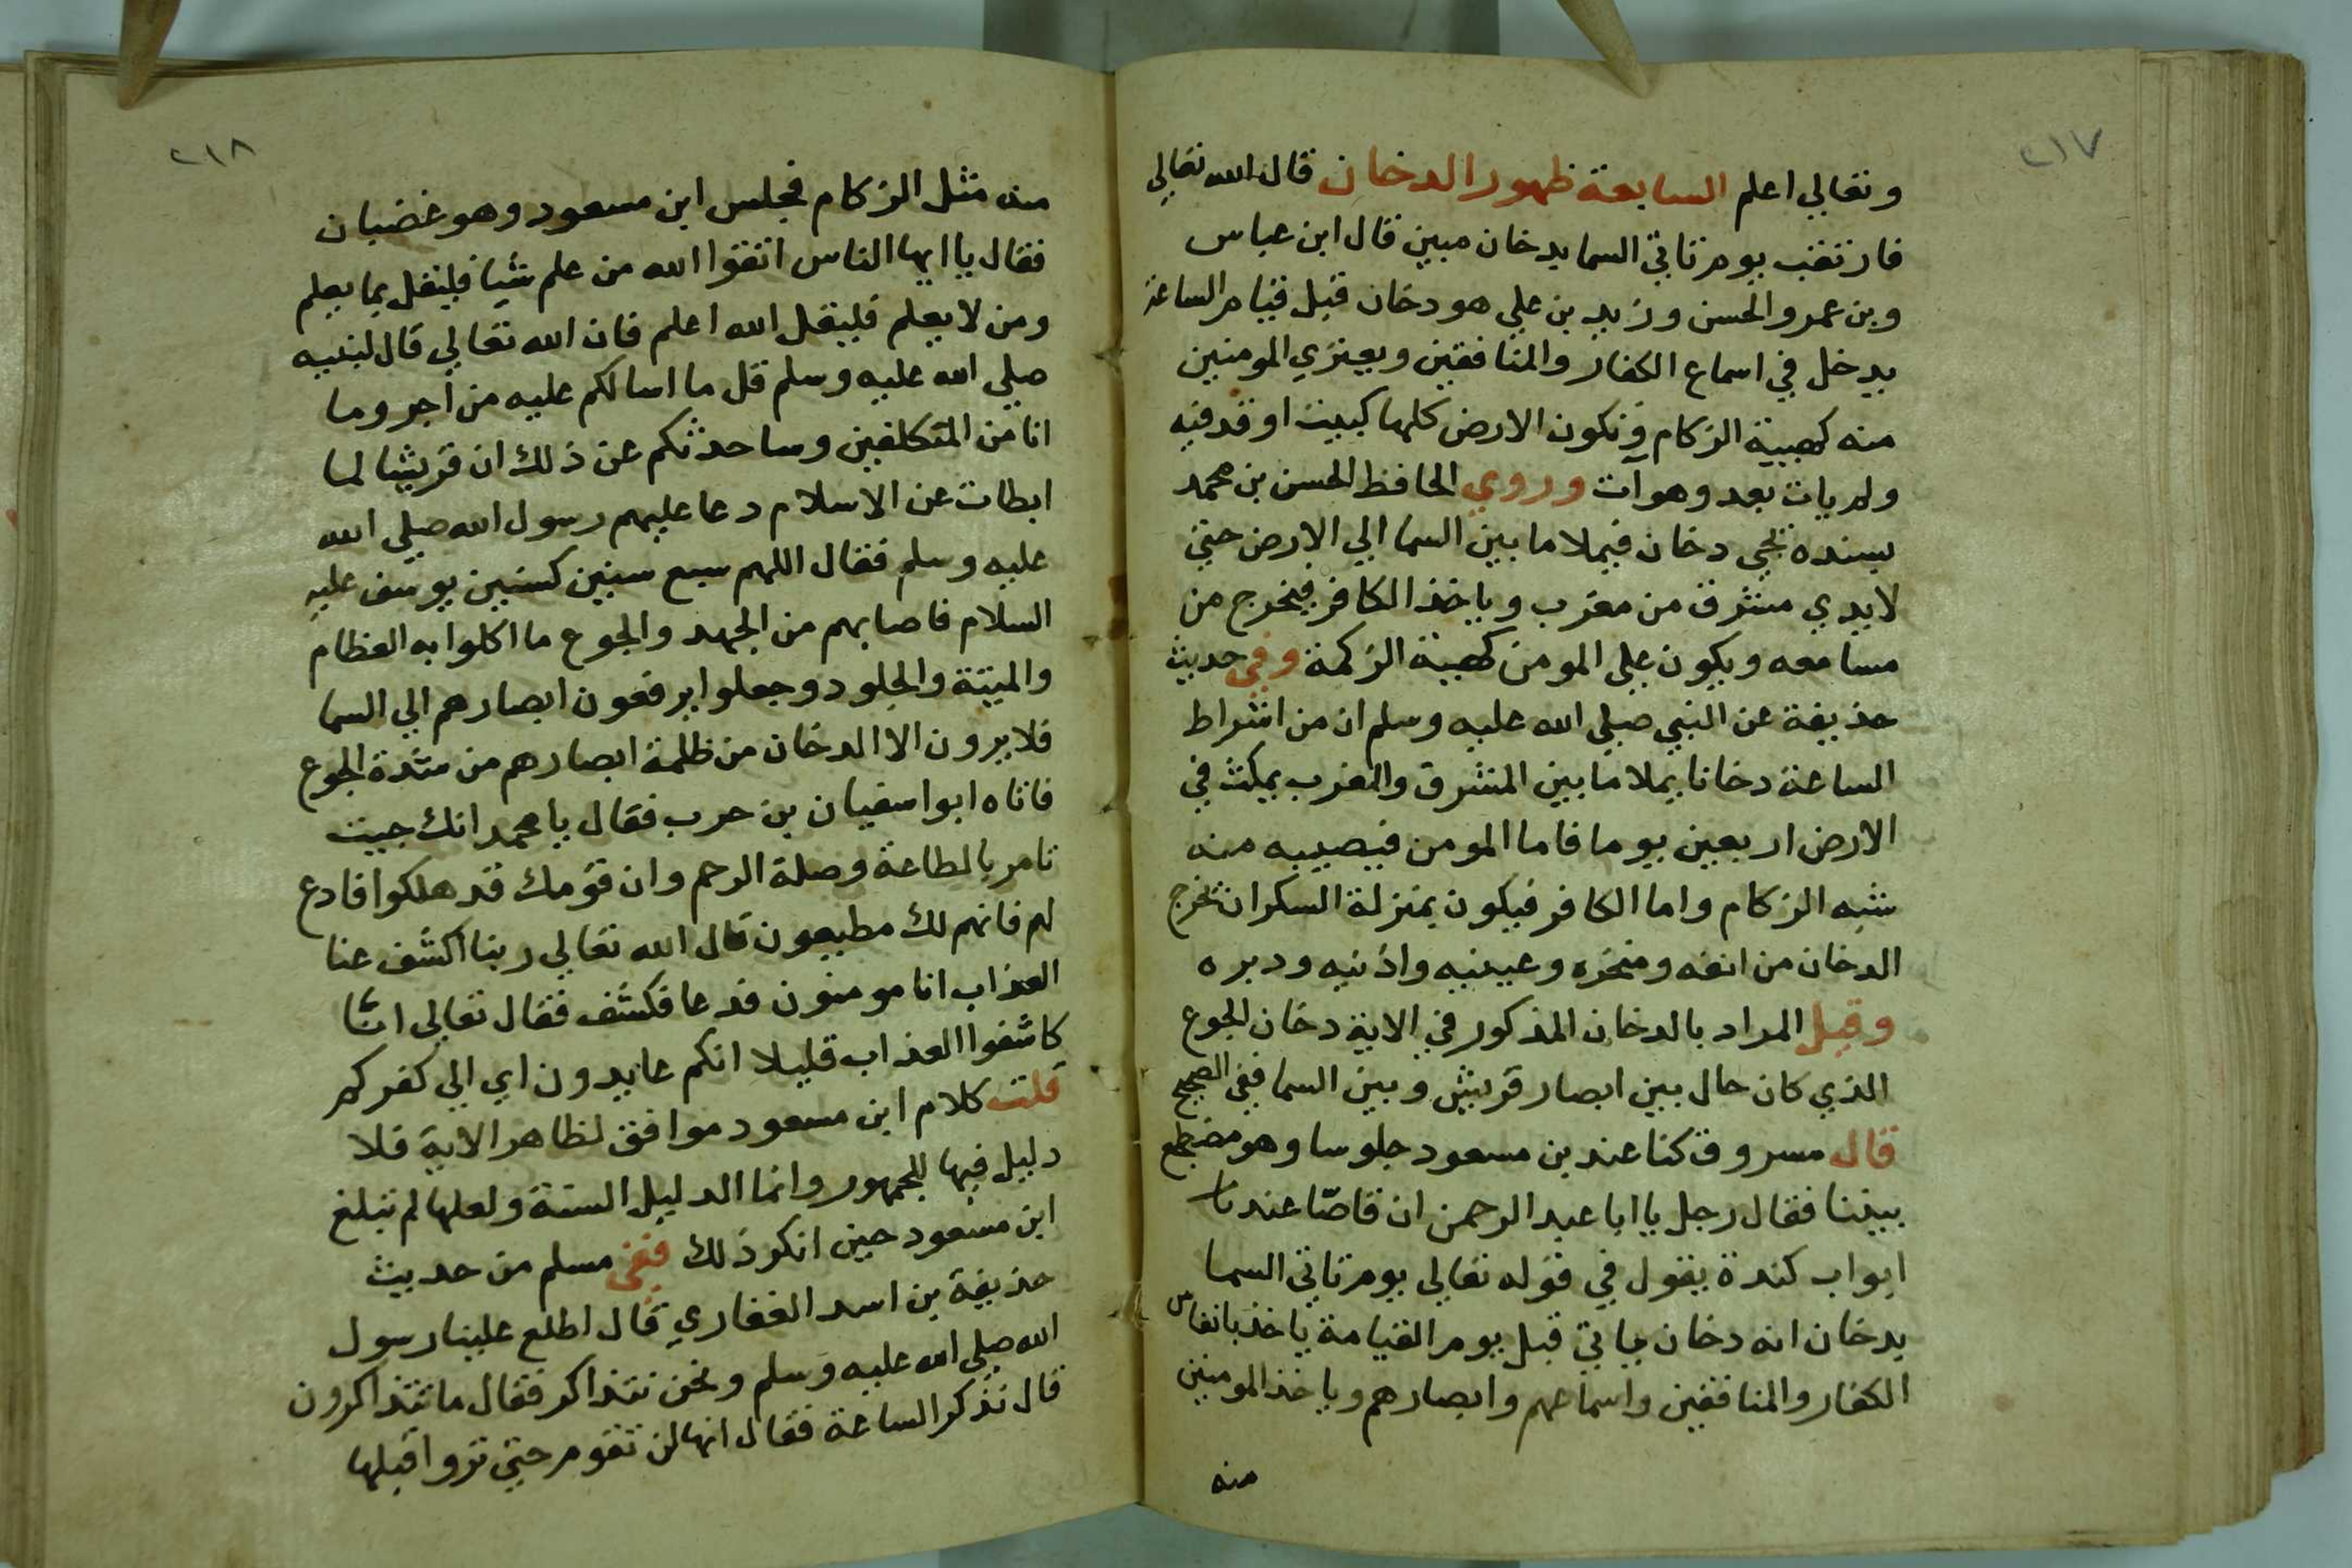 ٢١٧
وتعالي اعلم السابعة ظهور الدخان قال الله تعالي
فارتقب يوم تاتي السما بدخان مبين قال ابن عباس
وبن عمر والحسن وزيد بن علي هو دخان قبل قيام الساعة
يدخل في اسماع الكفار والمنافقين ويعتري المومنين
منه كهيية الزكام وتكون الارض كلها كبيت اوقد فيه
ولم يات بعد وهو آت وروي الحافظ الحسن بن محمد
بسنده يجي دخان فيملا ما بين السما الي الارض حتي
لا يدي مشرق من مغرب وياخذ الكافر فيخرج من
مسامعه ويكون علي المومن كهيية الزكمة وفي حديث
حذيفة عن النبي صلي الله عليه وسلم ان من اشراط
الساعة دخانا يملا ما بين المشرق والمغرب يمكث في
الارض اربعين يوما فاما المومن فيصيبه منه
شبه الزكام واما الكافر فيكون بمنزلة السكران يخرج
الدخان من انفه ومنخره وعينيه واذنيه ودبره
وقيل المراد بالدخان المذكور في الاية دخان الجوع
الذي كان حال بين ابصار قريش وبين السما ففي الصحيح
قال مسروق كنا عند بن مسعود جلوسا وهو مضطجع
بيننا فقال رجل يا ابا عبد الرحمن ان قاصّا عند باب
ابواب كندة يقول في قوله تعالي يوم تاتي السما
بدخان انه دخان ياتي قبل يوم القيامة ياخذ بانفاس
الكفار والمنافقين واسماعهم وابصارهم وياخذ المومنين
منه
٢١٨
منه مثل الزكام فجلس ابن مسعود وهو غضبان
فقال يا ايها الناس اتقوا الله من علم شيا فليقل بما يعلم
ومن لا يعلم فليقل الله اعلم فان الله تعالي قال لنبيه
صلي الله عليه وسلم قل ما اسالكم عليه من اجر وما
انا من المتكلفين وساحدثكم عن ذلك ان قريشا لما
ابطات عن الاسلام دعا عليهم رسول الله صلي الله
عليه وسلم فقال اللهم سبع سنين كسنين يوسف عليه
السلام فاصابهم من الجهد والجوع ما اكلوا به العظام
والميتة والجلود وجعلوا يرفعون ابصارهم الي السما
فلا يرون الا الدخان من ظلمة ابصارهم من شدة الجوع
فاتاه ابوا سفيان بن حرب فقال يا محمد انك جيت
تامر بالطاعة وصلة الرحم وان قومك قد هلكوا فادع
لهم فانهم لك مطيعون قال الله تعالي ربنا اكشف عنا
العذاب انا مومنون فدعا فكشف فقال تعالي انّا
كاشفوا العذاب قليلا انكم عايدون اي الي كفركم
قلت كلام ابن مسعود موافق لظاهر الاية فلا
دليل فيها للجمهور وانما الدليل السنة ولعلها لم تبلغ
ابن مسعود حين انكر ذلك ففي مسلم من حديث
حذيفة بن اسد الغفاري قال اطلع علينا رسول
الله صلي الله عليه وسلم ونحن نتذاكر فقال ما تتذاكرون
قال نذكر الساعة فقال انها لن تقوم حتي تروا قبلها